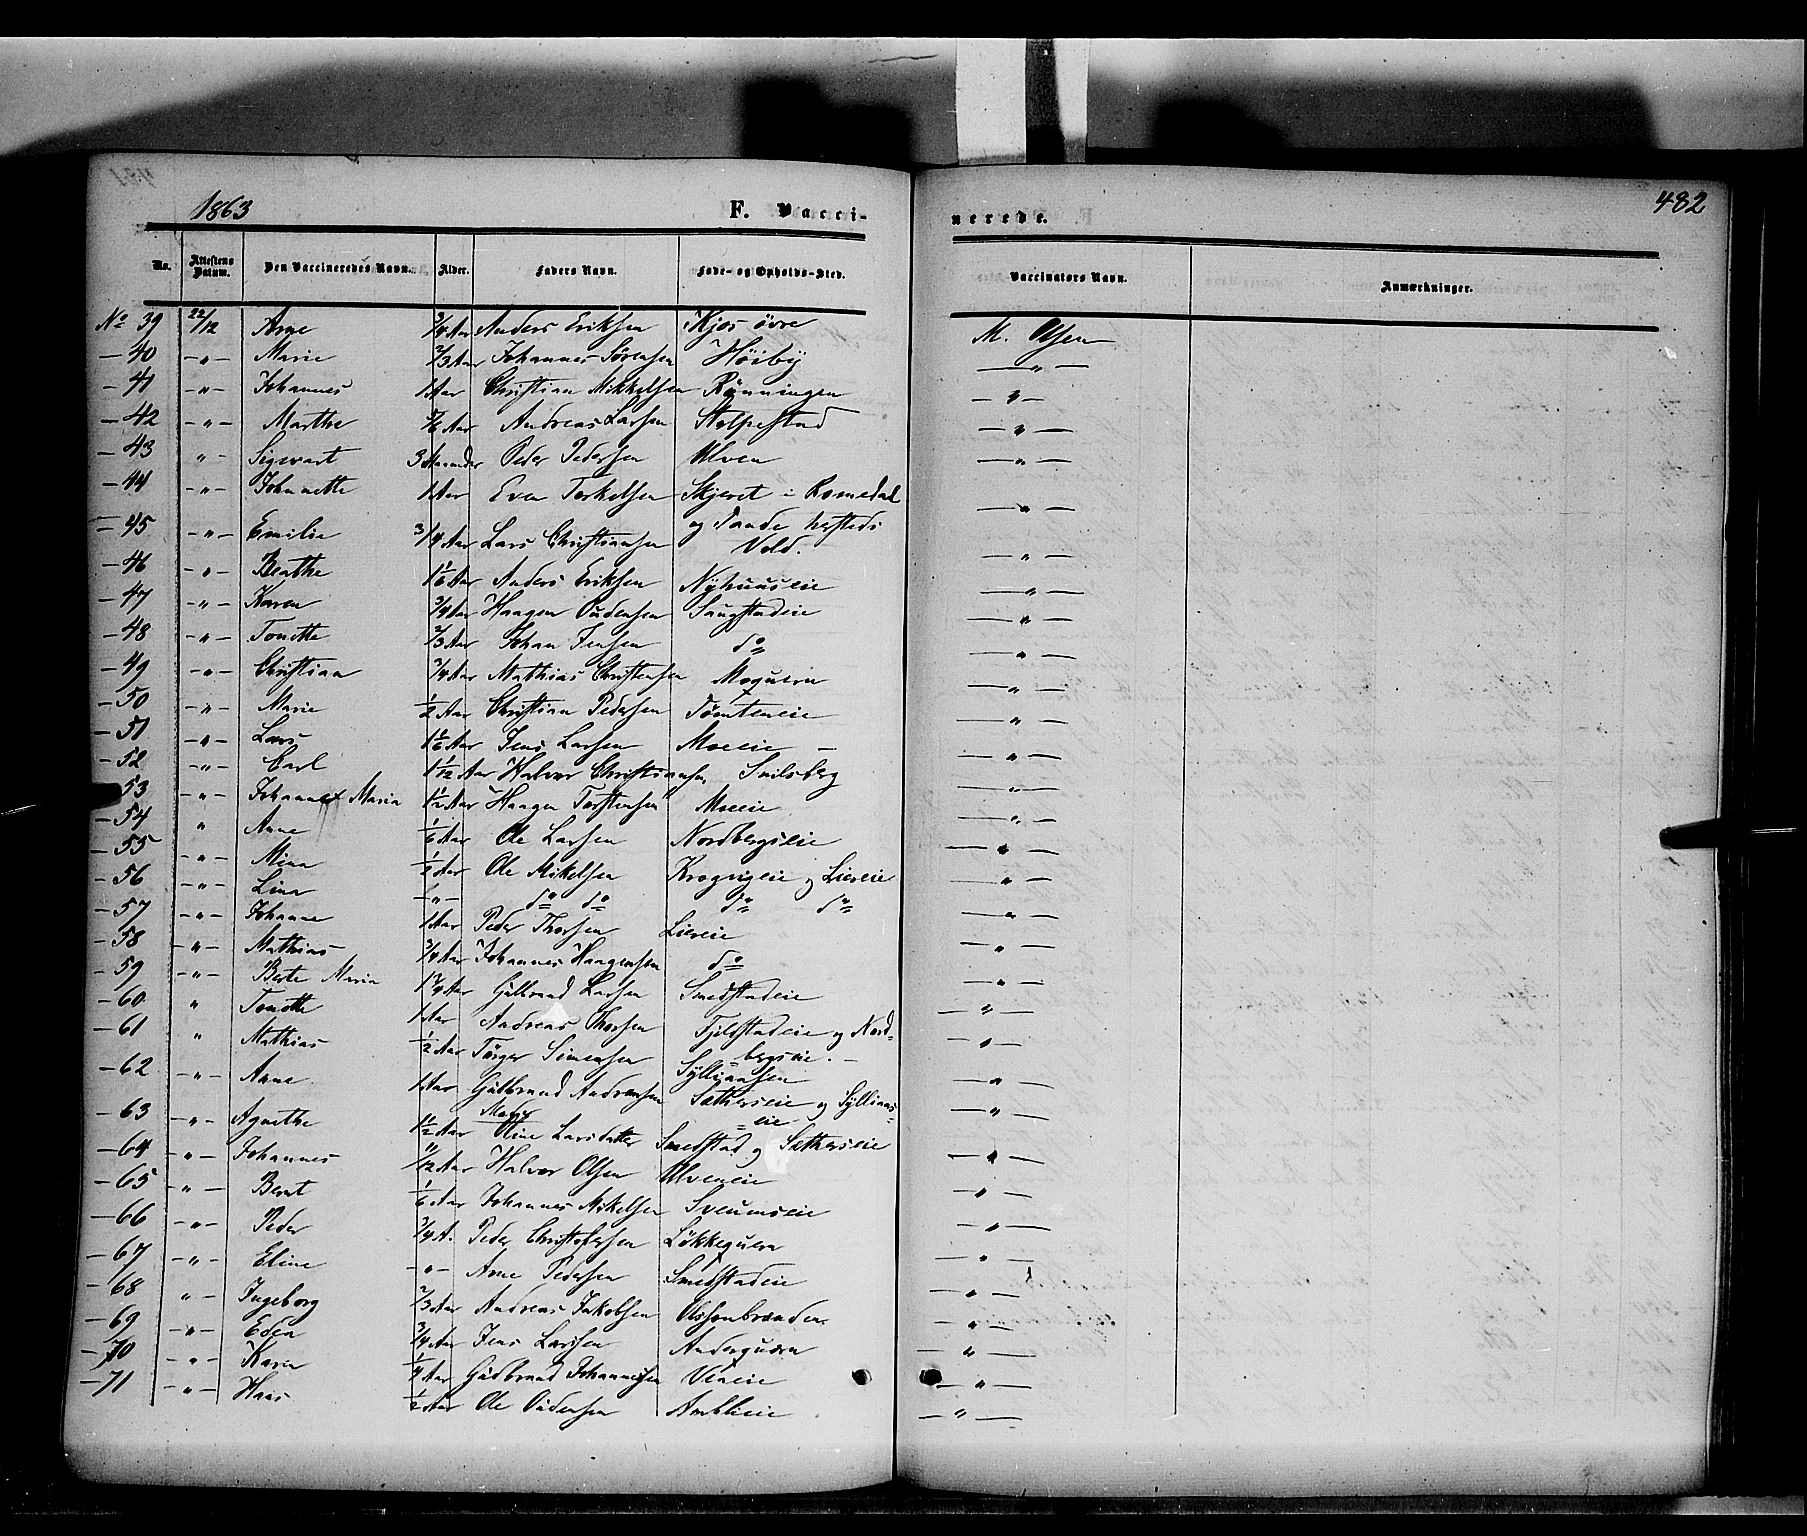 1863 F. Vacci-
nerede. 482
No. Attestens Datum. Den Vaccineredes Navn. Alder. Faders Navn. Føde- og Opholds-Sted. Vaccinators Navn. Anmærkninger.
No 39 22/12 Arne 3/4 Aar Anders Eriksen Kjos övre M. Olsen
- 40 -"- Marie 2/3 Aar Johannes Sörensen Höiby -"-
- 41 -"- Johannes 1 Aar Christian Mikkelsen Rönningen -"-
- 42 -"- Marthe Aar Andreas Larsen Stolpestad -"-
- 43 " Sigwart 3 Maaneder Peder Pedersen Ulven -"-
- 44 -"- Johanette 1 Aar Even Torkelsen Skjeret i Romedal -"-
og Taade hersteds
- 45 -"- Emilie 3/4 Aar Lars Christiansen Vold. -"-
- 46 -"- Beathe 1 1/6 Aar Anders Eriksen Nyhuuseie -"-
- 47 -"- Karen 3/4 Aar Haagen Oudensen Saugstadeie -"-
- 48 -"- Tonette 2/3 Aar Johan Jensen do -"-
- 49 -"- Christian 3/4 Aar Mathias Christensen Moquern -"-
- 50 -"- Marie 1/2 Aar Christian Pedersen Tömteneie -"-
- 51 -"- Lars 1 1/6 Aar Jens Larsen Moeeie - -"-
- 52 -"- Carl 1 1/12 Aar Halvor Christiansen Snilsberg -"-
- 53 -"- Johanne Maria 1 1/2 Aar Haagen Torstensen Moeeie -"-
- 54 " Anne 1/6 Aar Ole Larsen Nordbergseie -"-
- 55 -"- Mina 1/2 Aar Ole Mikelsen Krogvigeie og Liereie -"-
- 56 -"- Lina -"- do do do do -"-
- 57 -"- Johanne 1 Aar Peder Thorsen Liereie -"-
- 58 -"- Mathias 3/4 Aar Johannes Haagensen do -"-
- 59 -"- Berte Maria Aar Gulbrand Larsen Smedstadeie -"-
- 60 " Tonette 1 Aar Andreas Thorsen Fjelstadeie og Nord- -"-
bergseie. -
- 61 " Mathias 1/2 Aar Törger Simensen Sylliaasen -"-
- 62 -"- Anne 1 Aar Gulbrand Andreasen Sætherseie og Sylliaas- -"-
eie
- 63 -"- Agnethe 1 1/2 Aar Moder Oline Larsdatter Smedstad og Sætherseie -"-
- 64 -"- Johannes 11/12 Aar Halvor Olsen Ulveneie -"-
- 65 -"- Bernt 1/6 Aar Johannes Mikelsen Sveumseie -"-
- 66 -"- Peder 3/4 A. Peder Christofersen Lökkequern -"-
- 67 -"- Eline -"- Arne Pedersen Smedstadeie -"-
- 68 -"- Ingeborg 2/3 Aar Andreas Jakobsen -"-
- 69 -"- Eden 3/4 Aar Jens Larssen Anderquern -"-
- 70 -"- Karen 1/4 Aar Gudbrand Johannesen Vieeie -"-
- 71 -"- Haas 1/2 Aar Ole Oudensen Amblieie -"-